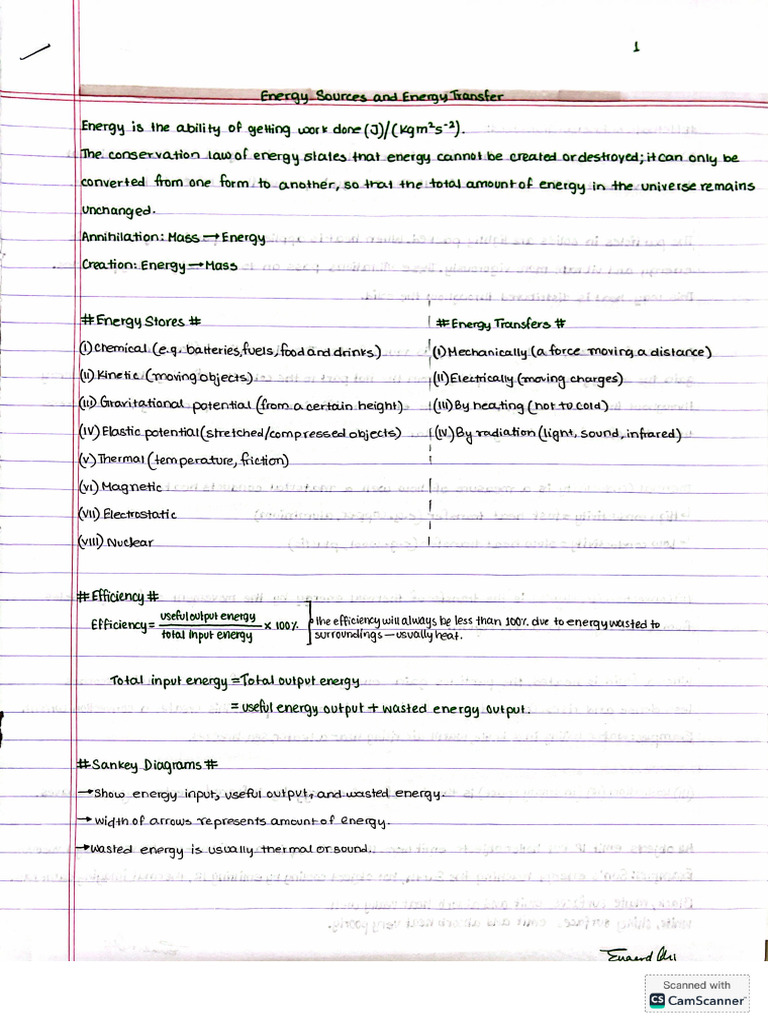 1
Energy Sources and Energy Transfer
Energy is the ability of getting work done (J)/(kgm²s⁻²).
The conservation law of energy states that energy cannot be created or destroyed; it can only be
converted from one form to another, so that the total amount of energy in the universe remains
unchanged.
Annihilation: Mass → Energy
Creation: Energy → Mass
# Energy Stores #
(i) Chemical (e.g. batteries, fuels, food and drinks)
(ii) Kinetic (moving objects)
(iii) Gravitational potential (from a certain height)
(iv) Elastic potential (stretched/compressed objects)
(v) Thermal (temperature, friction)
(vi) Magnetic
(vii) Electrostatic
(viii) Nuclear
# Energy Transfers #
(i) Mechanically (a force moving a distance)
(ii) Electrically (moving charges)
(iii) By heating (hot to cold)
(iv) By radiation (light, sound, infrared)
# Efficiency #
Efficiency = useful output energy / total input energy × 100%
The efficiency will always be less than 100% due to energy wasted to
surroundings — usually heat.
Total input energy = Total output energy
= useful energy output + wasted energy output.
# Sankey Diagrams #
→ Show energy input, useful output, and wasted energy.
→ Width of arrows represents amount of energy.
→ Wasted energy is usually thermal or sound.
Scanned with
CS CamScanner